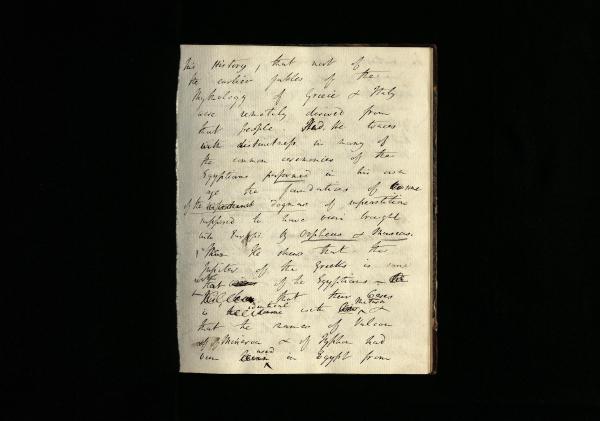 his History, that most of
the earlier fables of the
Mythology of Greece & Italy
were remotely derived from
that people. He traces
with distinctness in many of
the common ceremonies of the
Egyptians performed in his own
age the foundations of some
of the dogmas of superstition
supposed to have been brought
into Europe by Orpheus & Museus.
He shews that the
Jupiter of the Greeks is
that of the Egyptians
that their Ceres
is identical with &
that the names of Vulcan
of Minerva & of Typhon had
been used in Egypt from